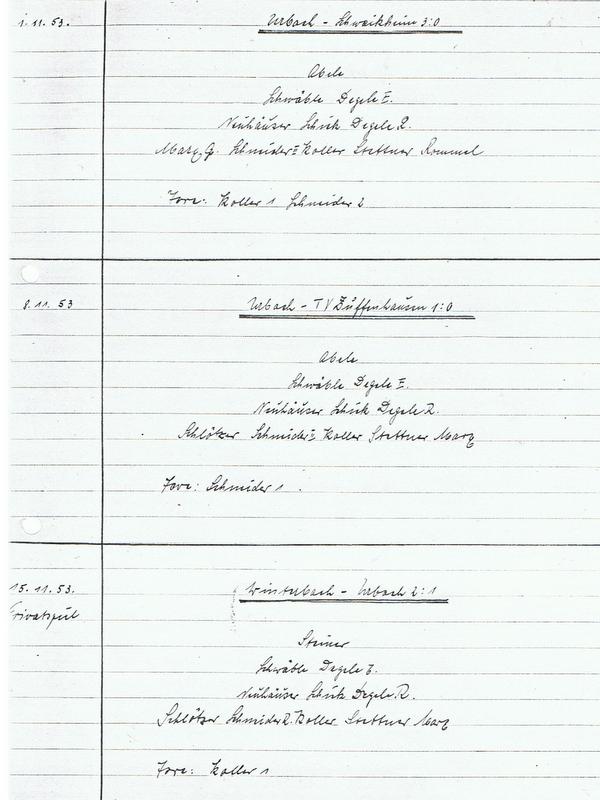 1.11.53.
Urbach - Schwaikheim 3:0
Abele
Schwäble Degele E.
Neuhäuser Schick Degele R.
Marq. G. Schneider I Koller Stettner Rommel
Tore: Koller 1 Schneider 2
8.11.53
Urbach - TV Zuffenhausen 1:0
Abele
Schwäble Degele E.
Neuhäuser Schick Degele R.
Schlötzer Schneider I Koller Stettner Marq
Tore: Schneider 1.
15.11.53.
Privatspiel
Winterbach - Urbach 2:1
Steiner
Schwäble Degele E.
Neuhäuser Schick Degele R.
Schlötzer Schneider R. Koller Stettner Marq
Tore: Koller 1